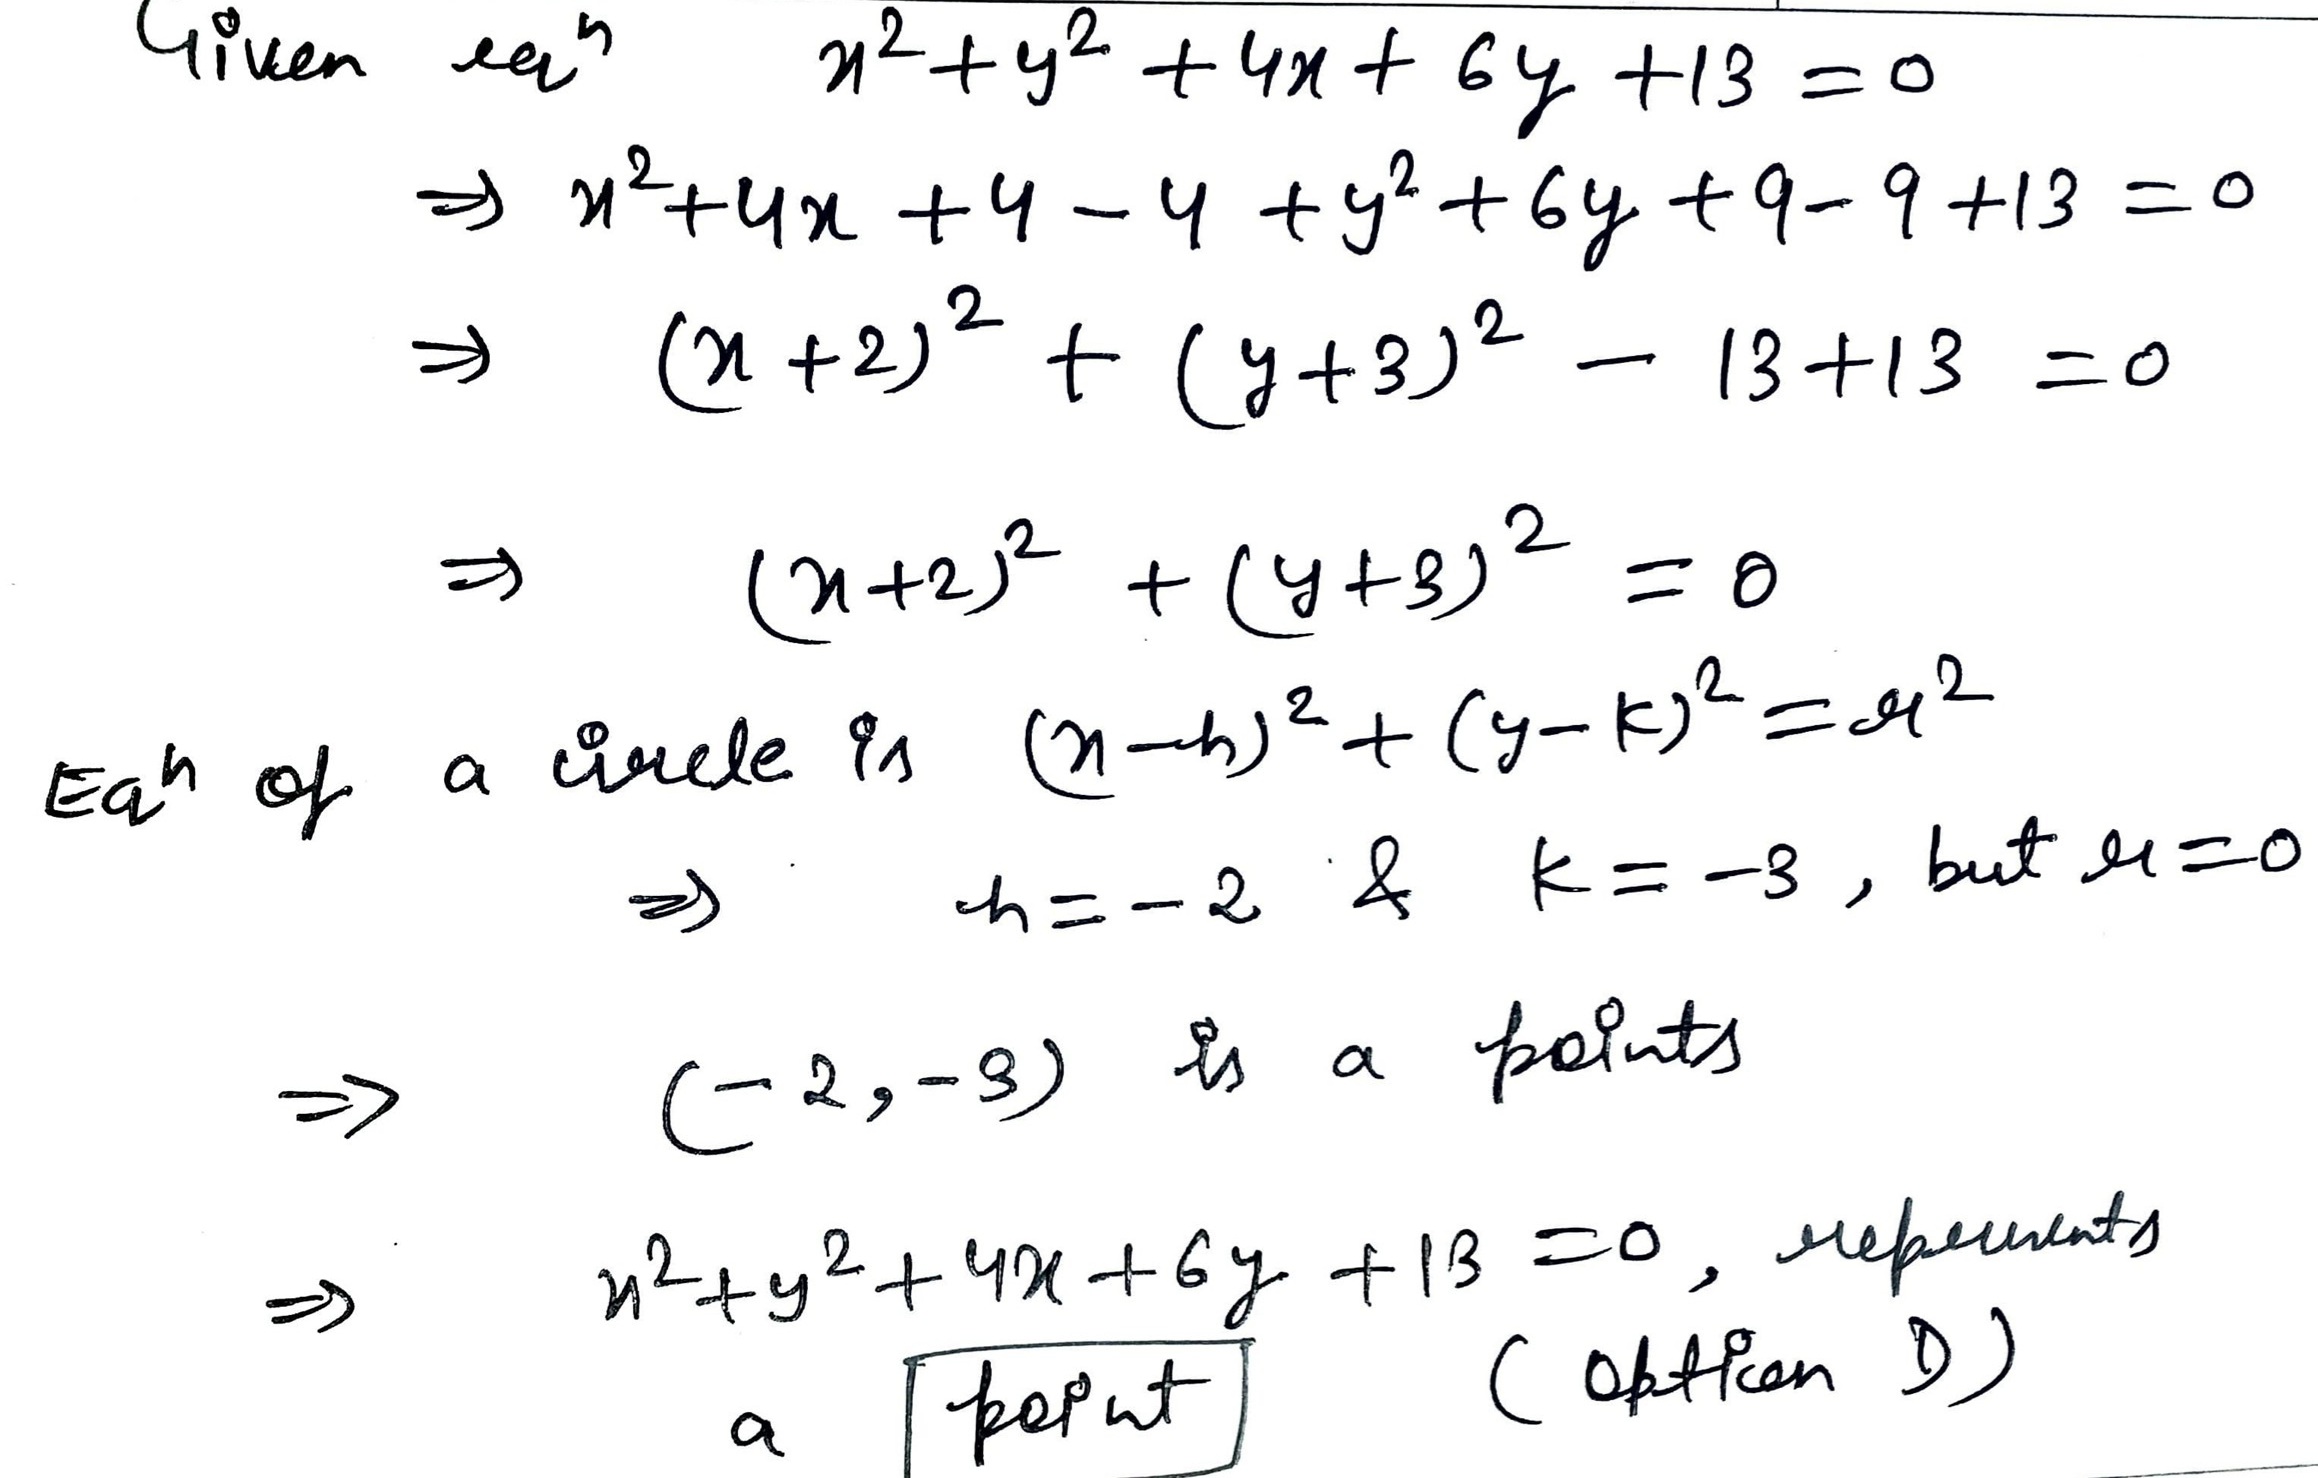 Given eqⁿ x² + y² + 4x + 6y + 13 = 0
⇒ x² + 4x + 4 - 4 + y² + 6y + 9 - 9 + 13 = 0
⇒ (x + 2)² + (y + 3)² - 13 + 13 = 0
⇒ (x + 2)² + (y + 3)² = 0
Eqⁿ of a circle is (x - h)² + (y - k)² = r²
⇒ h = -2 & k = -3, but r = 0
⇒ (-2, -3) is a points
⇒ x² + y² + 4x + 6y + 13 = 0, represents
a point (Option D)